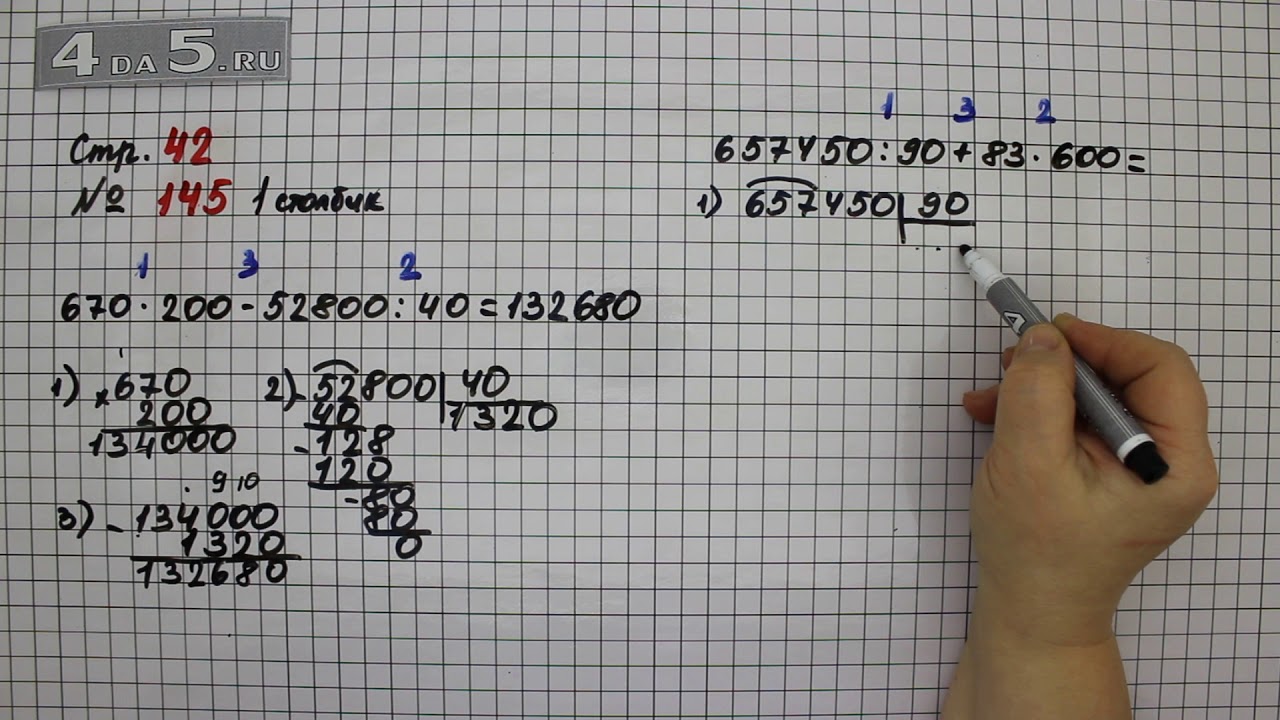 4DA5.RU
Стр. 42
№ 145 1 столбик
1 3 2
670 · 200 - 52800 : 40 = 132680
1) × 670
200
134000
2) - 52800 | 40
40 1320
- 128
120
- 80
80
0
9 10
3) - 134000
1320
132680
1 3 2
657450 : 90 + 83 · 600 =
1) 657450 | 90
. . .